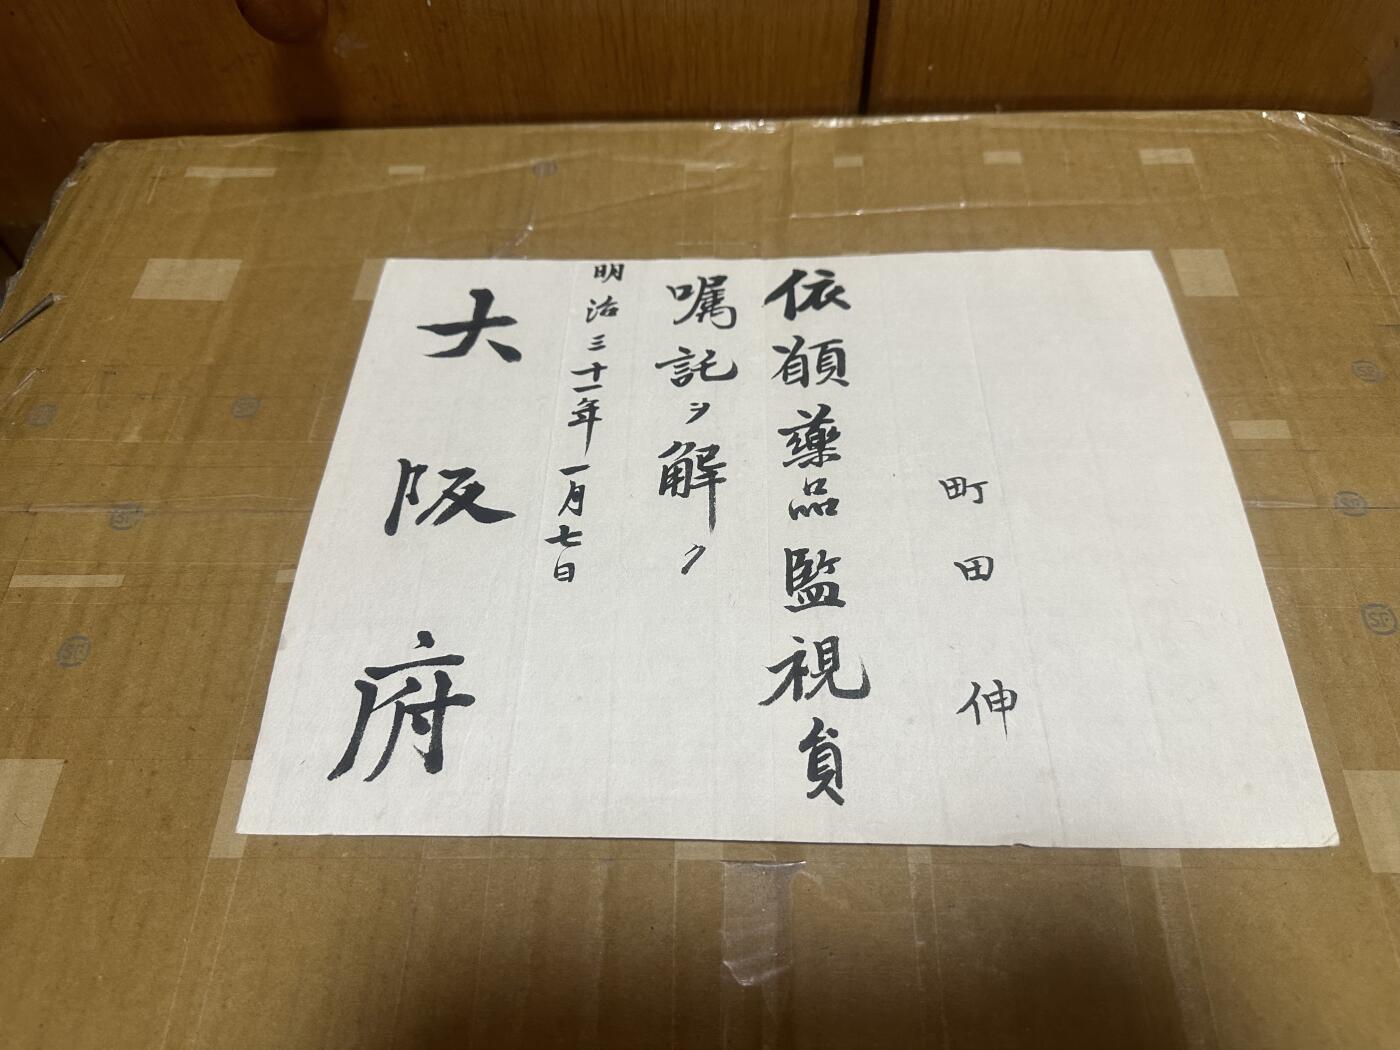 町田伸
依願藥品監視員
嘱託ヲ解ク
明治三十一年一月七日
大阪府